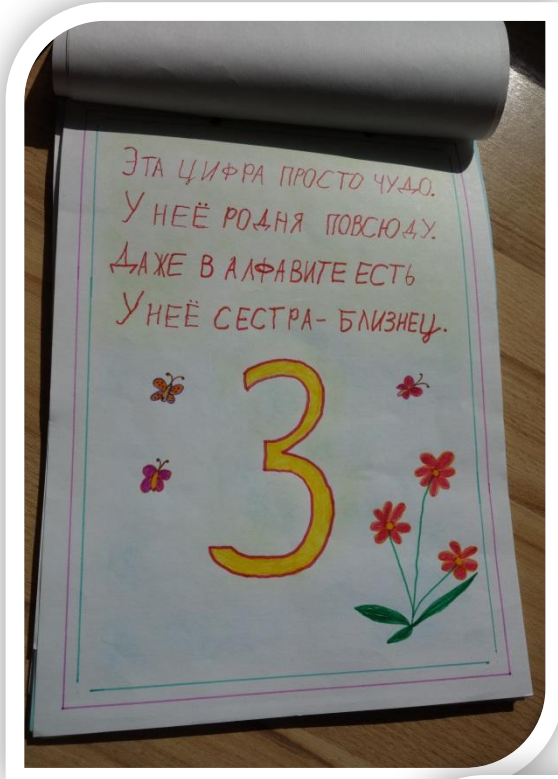 ЭТА ЦИФРА ПРОСТО ЧУДО.
У НЕЁ РОДНЯ ПОВСЮДУ.
ДАЖЕ В АЛФАВИТЕ ЕСТЬ
У НЕЁ СЕСТРА- БЛИЗНЕЦ.
3